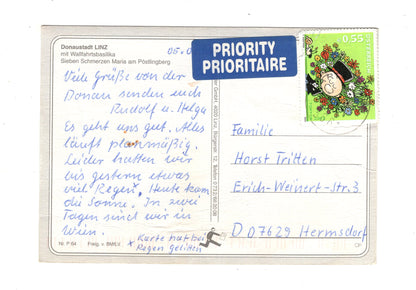 Donaustadt LINZ
mit Wallfahrtsbasilika
Sieben Schmerzen Maria am Pöstlingberg
05.0
PRIORITY
PRIORITAIRE
0,55
ÖSTERREICH
Viele Grüße von der
Donau senden euch
Rudolf u. Helga
Es geht uns gut. Alles
läuft planmäßig.
Leider hatten wir
bis gestern etwas
viel Regen. Heute kam
die Sonne. In zwei
Tagen sind wir in
Wien.
* Karte hat bei
Regen gelitten
Familie
Horst Tritten
Erich-Weinert-Str. 3
D 07629 Hermsdorf
Nr. P 64
Freig. v. BMfLV